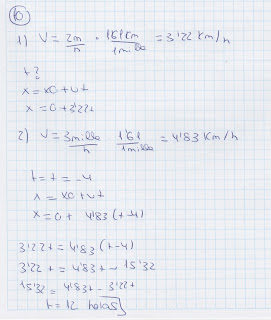 10
1) V = 2m/h · 1'61 Km/1 milla = 3'22 Km/h
t?
x = x0 + vt
x = 0 + 3'22t
2) V = 3 milla/h 1'61/1 milla = 4'83 Km/h
t = t = -4
x = x0 + vt
x = 0 + 4'83 (t-4)
3'22t = 4'83 (t-4)
3'22t = 4'83t - 15'32
15'32 = 4'83t - 3'22t
t = 12 horas